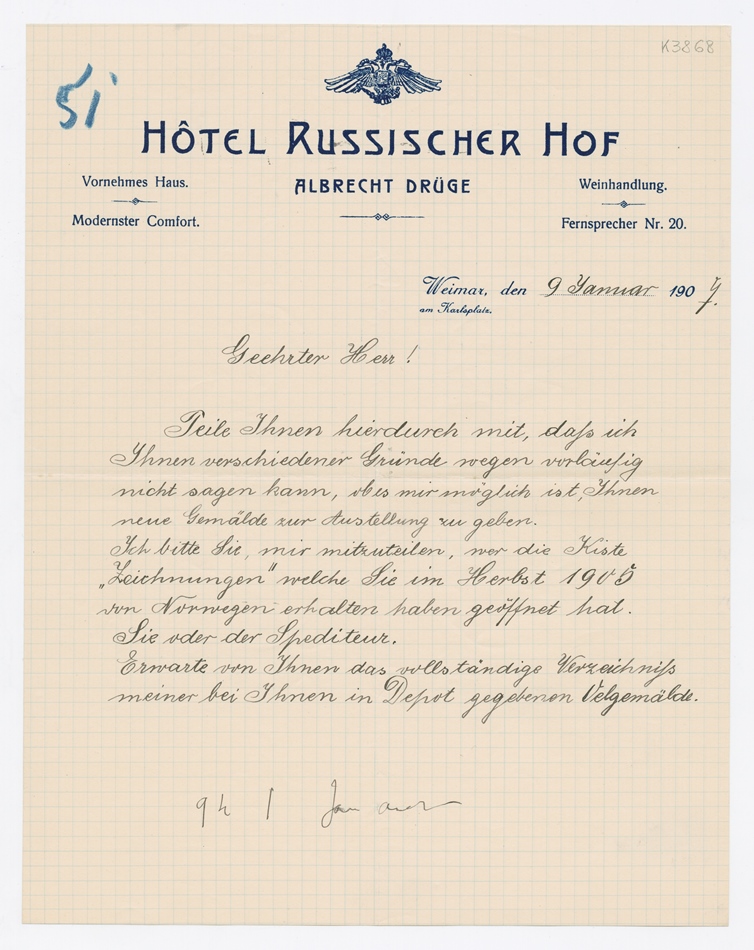 K3868
51
HÔTEL RUSSISCHER HOF
ALBRECHT DRÜGE
Vornehmes Haus.
Modernster Comfort.
Weinhandlung.
Fernsprecher Nr. 20.
Weimar, den 9 Januar 1907.
am Karlsplatz.
Geehrter Herr!
Teile Ihnen hierdurch mit, daſs ich
Ihnen verschiedener Gründe wegen vorläufig
nicht sagen kann, ob es mir möglich ist, Ihnen
neue Gemälde zur Austellung zu geben.
Ich bitte Sie, mir mitzuteilen, wer die Kiste
„Zeichnungen" welche Sie im Herbst 1905
von Norwegen erhalten haben geöffnet hat.
Sie oder der Spediteur.
Erwarte von Ihnen das vollständige Verzeichniſs
meiner bei Ihnen in Depot gegebenen Oelgemälde.